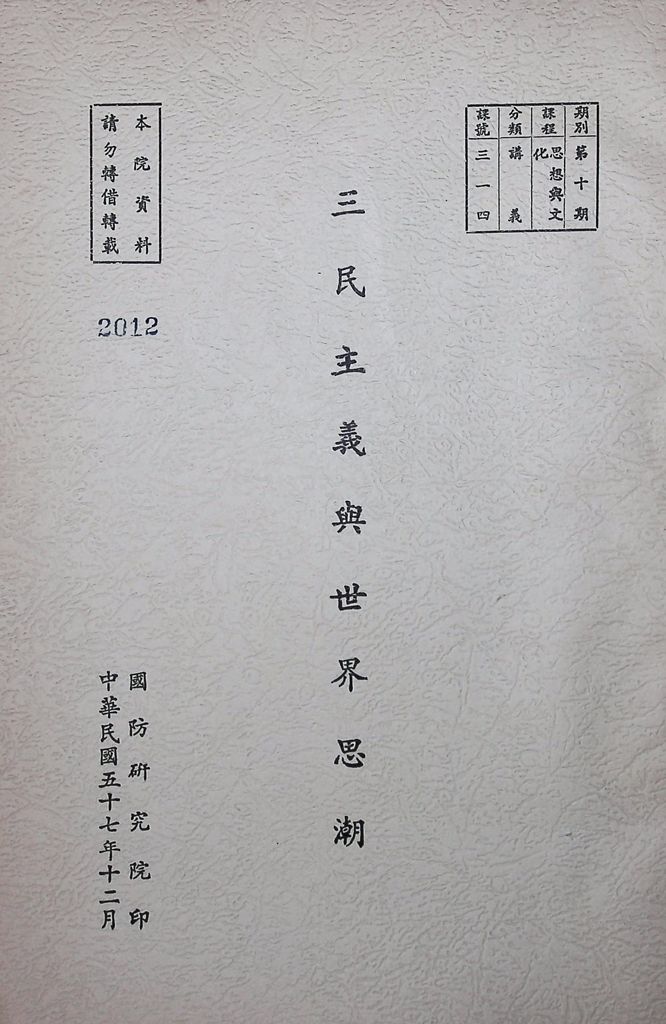 期別 第十期
課程 思想與文化
分類 講義
課號 三一四
三民主義與世界思潮
本院資料
請勿轉借轉載
2012
國防研究院印
中華民國五十七年十二月